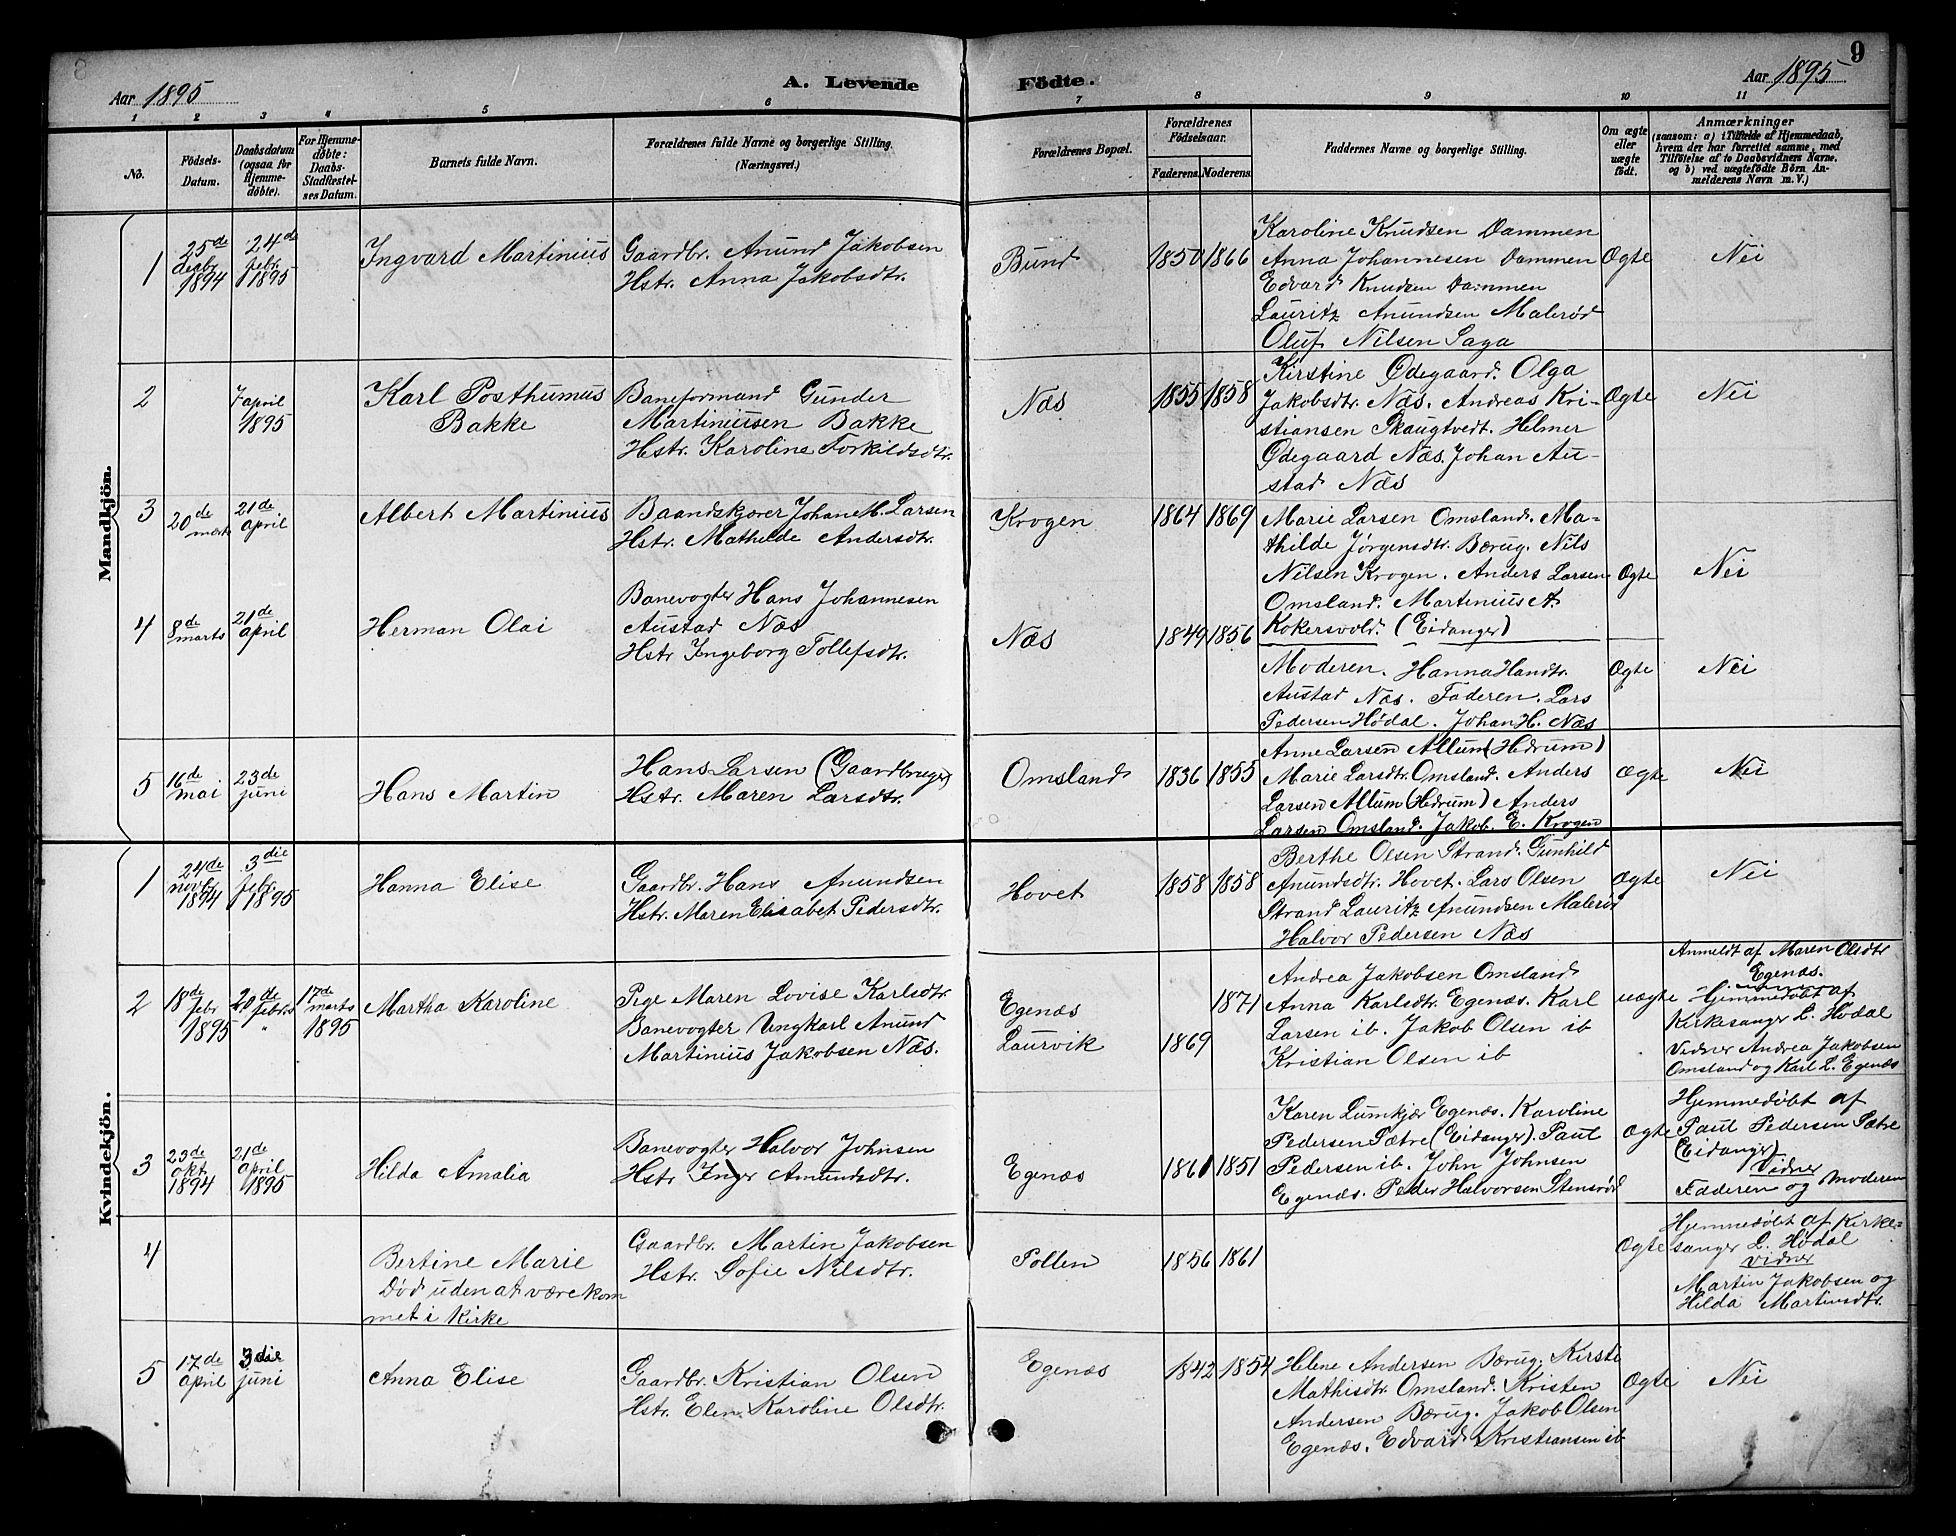 8
9
Aar 1895
A. Levende Födte.
Aar 1895
1 2 3 4 5 6 7 8 9 10 11
No.
Födsels-Datum.
Daabsdatum (ogsaa for Hjemmedøbte).
For Hjemmedøbte: Daabs-Stadfæstelses Datum.
Barnets fulde Navn.
Forældrenes fulde Navne og borgerlige Stilling. (Næringsvei.)
Forældrenes Bopæl.
Forældrenes Födselsaar.
Faderens. Moderens.
Faddernes Navne og borgerlige Stilling.
Om ægte eller uægte født.
Anmærkninger
(saasom: a) i Tilfælde af Hjemmedaab, hvem der har forrettet samme, med Tilföielse af to Daabsvidners Navne, og b) ved uægtefödte Börn Anmelderens Navn m. V.)
Mandkjön.
1
25de decbr 1894
24de febr 1895
Ingvard Martinius
Gaardbr. Anund Jakobsen
Hstr. Anna Jakobsdtr.
Bund
1850 1866
Karoline Knudsen Dammen
Anna Johannesen Dammen
Edvard Knudsen Dammen
Lauritz Anundsen Malerød
Oluf Nilsen Saga
Ægte
Nei
2
7 april 1895
Karl Posthumus
Bakke
Baneformand Gunder
Martiniusen Bakke
Hstr. Karoline Torkildsdtr.
Næs
1855 1858
Kirstine Ødegaard. Olga
Jakobsdtr. Næs. Andreas Kri-
stiansen Skaugtvedt. Helmer
Ødegaard Næs. Johan Au-
stad Næs
Ægte
Nei
3
20de marts
21de april
Albert Martinius
Baandskjærer Johan M. Larsen
Hstr. Mathilde Andersdtr.
Krogen
1864 1869
Marie Larsen Omsland. Ma-
thilde Jørgensdtr. Bærug. Nils
Nilsen Krogen. Anders Larsen
Omsland. Martinius A.
Kokersvold. (Eidanger)
Ægte
Nei
4
8de marts
21de april
Herman Olai
Banevogter Hans Johannesen
Austad Næs
Hstr Ingeborg Tollefsdtr.
Næs
1849 1856
Moderen. Hanna Handtr.
Austad Næs. Faderen. Lars
Pedersen Hødal. Johan H. Næs
Ægte
Nei
5
16de mai
23de juni
Hans Martin
Hans Larsen (Gaardbruger)
Hstr. Maren Larsdtr.
Omsland
1836 1855
Anne Larsen Allum (Hedrum)
Marie Larsdtr. Omsland. Anders
Larsen Allum (Hedrum) Anders
Larsen Omsland. Jakob. E. Krogen
Ægte
Nei
Kvindekjön.
1
24de novbr 1894
3die febr. 1895
Hanna Elise
Gaardbr. Hans Anundsen
Hstr. Maren Elisabet Pedersdtr.
Hovet
1858 1858
Berthe Olsen Strand. Gunhild
Anundsdtr. Hovet. Lars Olsen
Strand Lauritz Anundsen Malerød
Halvor Pedersen Næs
Ægte
Nei
2
18de febr 1895
20de febr. "
17de marts 1895
Martha Karoline
Pige Maren Lovise Karlsdtr
Banevogter Ungkarl Anund
Martinius Jakobsen Næs.
Egenæs
Laurvik
1869 1871
Andrea Jakobsen Omsland
Anna Karlsdtr. Egenæs. Karl
Larsen ib. Jakob Olsen ib
Kristian Olsen ib
uægte
Anmeldt af Maren Olsdtr
Egenæs.
Hjemmedøbt af
Kirkesanger L. Hødal
Vidner Andrea Jakobsen
Omsland og Karl L. Egenæs
3
23de okt. 1894
21de april 1895
Hilda Amalia
Banevogter Halvor Johnsen
Hstr Inger Amundsdtr.
Egenæs
1861 1851
Karen Lumkjær Egenæs. Karoline
Pedersen Sætre (Eidanger). Paul
Pedersen ib. John Johnsen
Egenæs. Peder Halvorsen Stensrød
Ægte
Hjemmedøbt af
Paul Pedersen Sætre
(Eidanger)
Vidner
Faderen og Moderen
4
Bertine Marie
Død uden at være kom
met i Kirke
Gaardbr. Martin Jakobsen
Hstr. Sofie Nilsdtr.
Pollen
1856 1861
Ægte
Hjemmedøbt af Kirke-
sanger L. Hødal
Vidner
Martin Jakobsen og
Hilda Martinsdtr.
5
17de april
3die juni
Anna Elise
Gaardbr. Kristian Olsen
Hstr. Elen Karoline Olsdtr.
Egenæs
1842 1854
Helene Andersen Bærug. Kirste
Mathisdtr. Omsland. Kristen
Andersen Bærug. Jakob Olsen
Egenæs. Edvard Kristiansen ib
Ægte
Nei